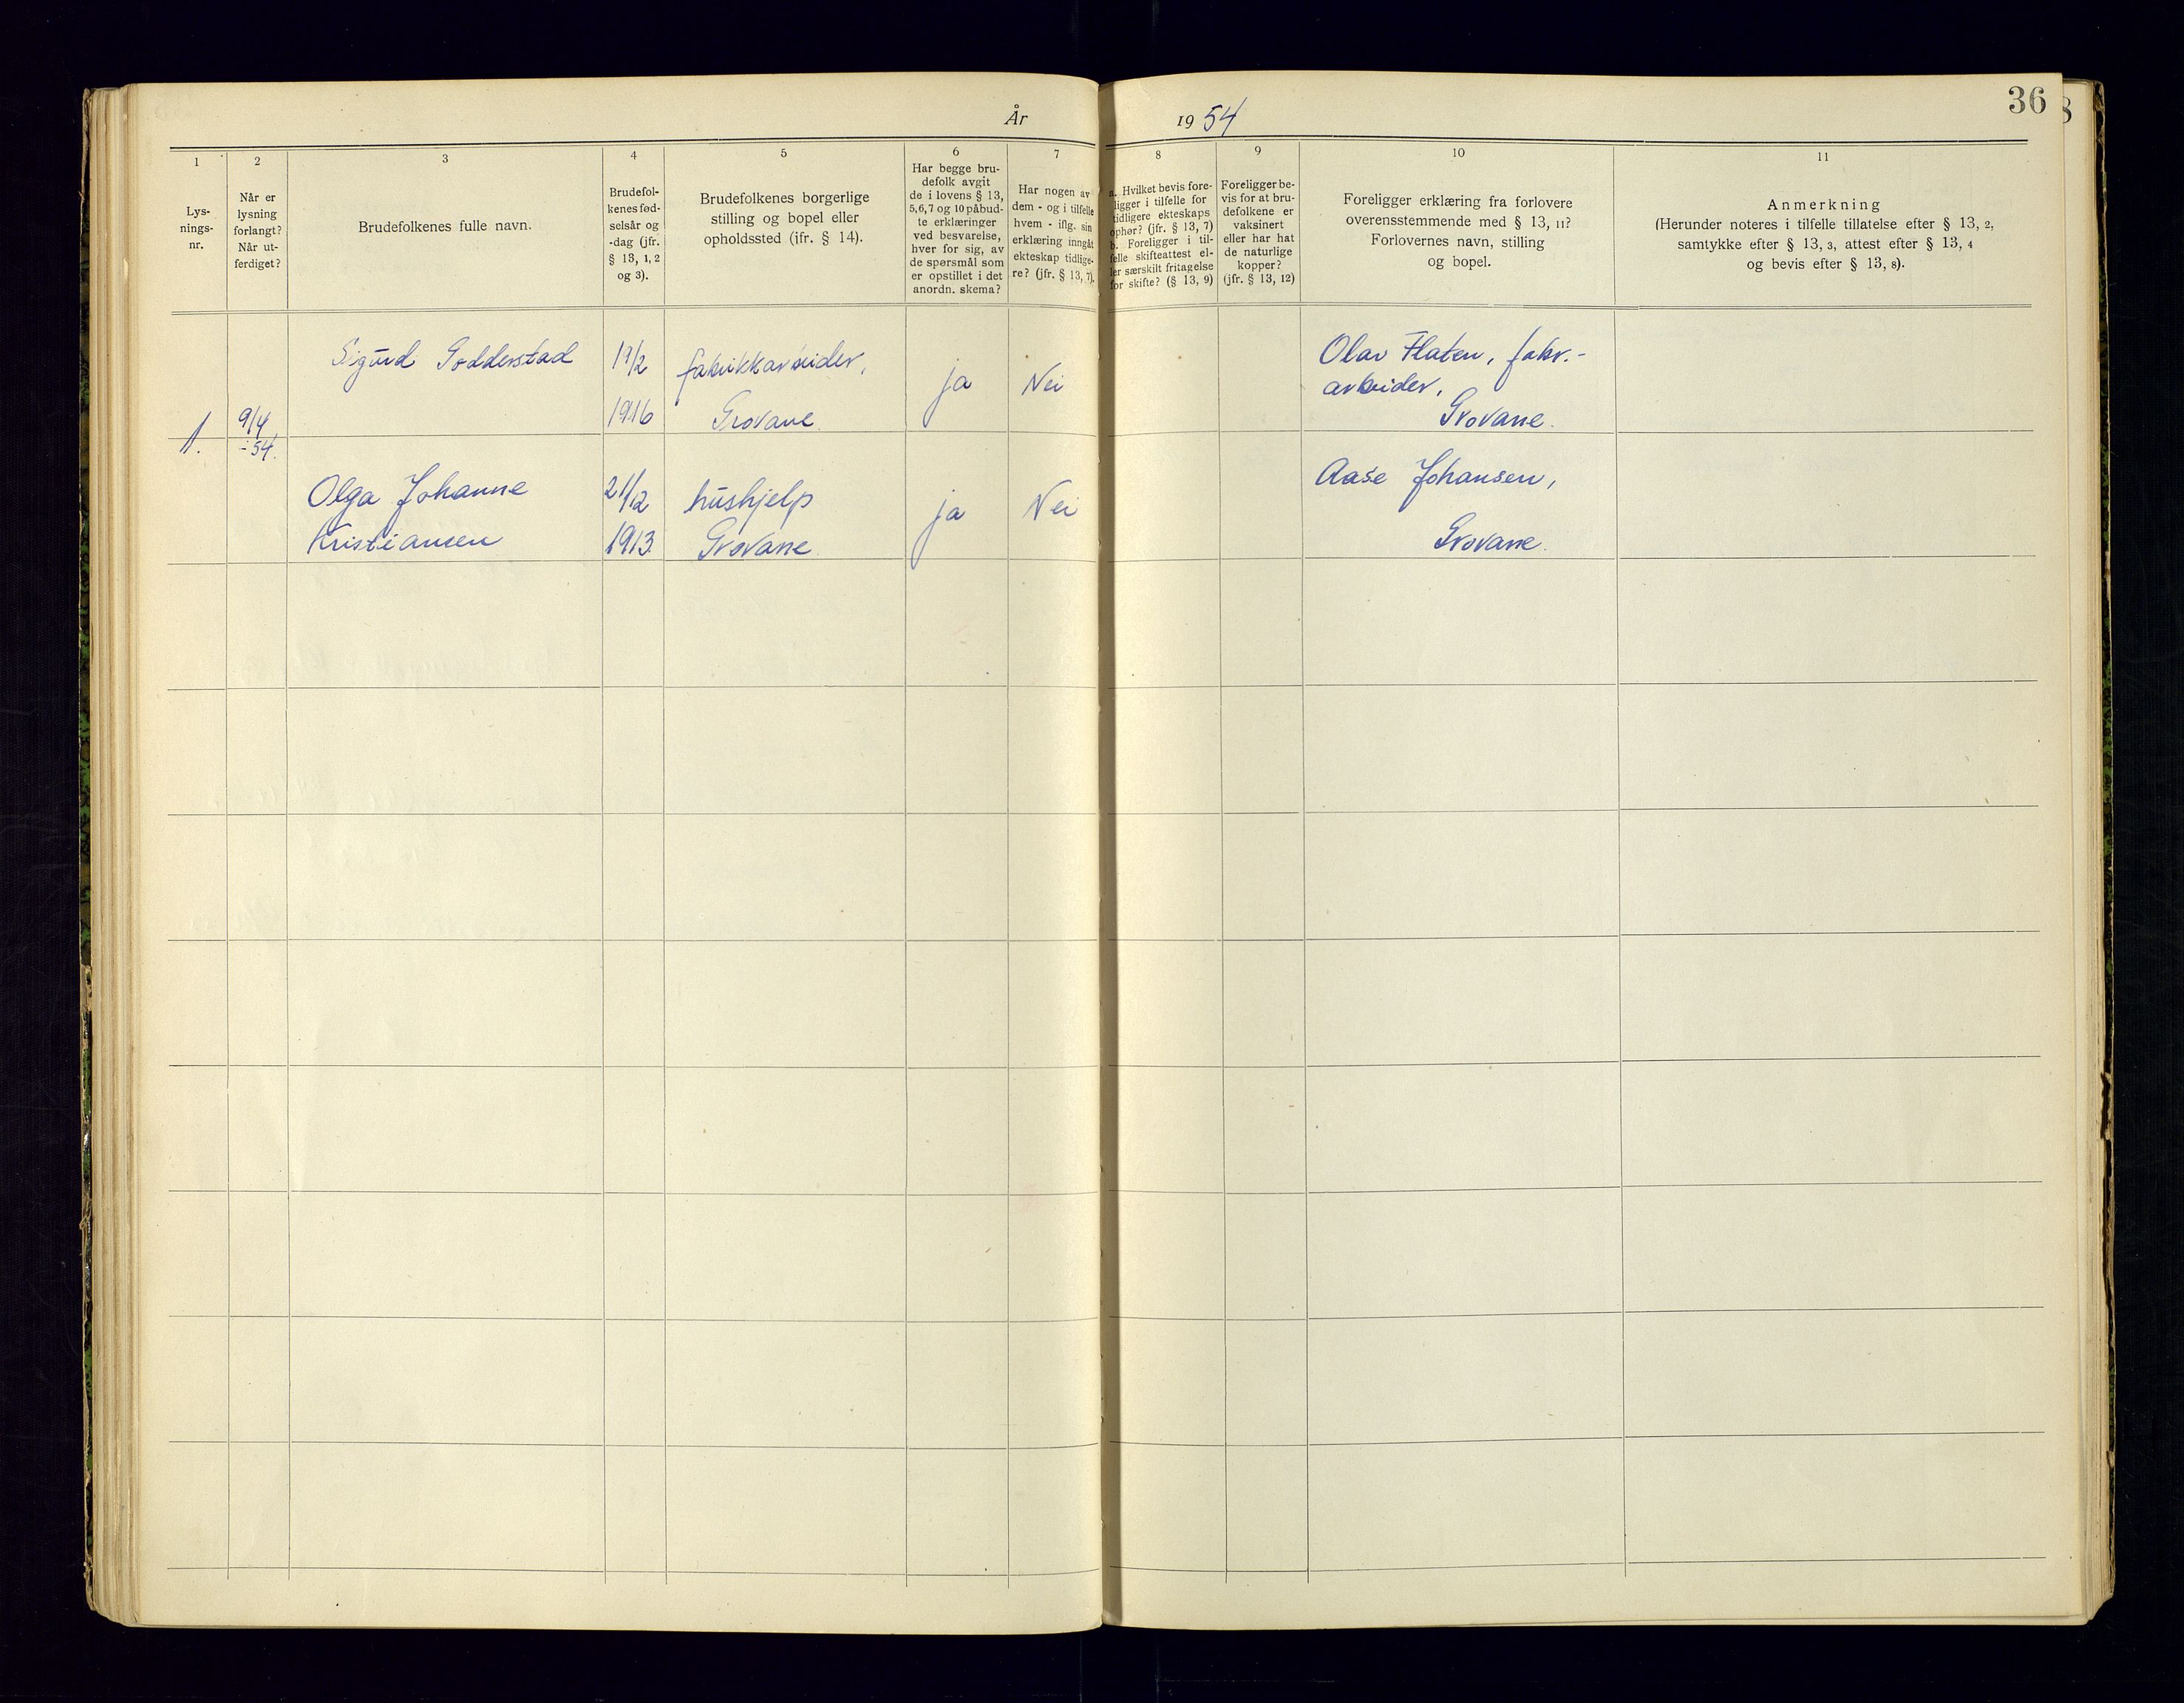 År 1954
36
8
1
Lys-
nings-
nr.
2
Når er
lysning
forlangt?
Når ut-
ferdiget?
3
Brudefolkenes fulle navn.
4
Brudefol-
kenes fød-
selsår og
-dag (jfr.
§ 13, 1, 2
og 3).
5
Brudefolkenes borgerlige
stilling og bopel eller
opholdssted (ifr. § 14).
6
Har begge bru-
defolk avgit
de i lovens § 13,
5,6,7 og 10 påbud-
te erklæringer
ved besvarelse,
hver for sig, av
de spørsmål som
er opstillet i det
anordn. skema?
7
Har nogen av
dem - og i tilfelle
hvem - iflg. sin
erklæring inngåt
ekteskap tidlige-
re? (jfr. § 13, 7).
8
a. Hvilket bevis fore-
ligger i tilfelle for
tidligere ekteskaps
ophør? (jfr. § 13, 7)
b. Foreligger i til-
felle skifteattest el-
ler særskilt fritagelse
for skifte? (§ 13, 9)
9
Foreligger be-
vis for at bru-
defolkene er
vaksinert
eller har hat
de naturlige
kopper?
(jfr. § 13, 12)
10
Foreligger erklæring fra forlovere
overensstemmende med § 13, 11?
Forlovernes navn, stilling
og bopel.
11
Anmerkning
(Herunder noteres i tilfelle tillatelse efter § 13, 2,
samtykke efter § 13, 3, attest efter § 13, 4
og bevis efter § 13, 8).
1.
9/4
-54.
Sigurd Godderstad
17/2
1916
fabrikkarbeider,
Grovane.
ja
Nei
Olav Flaten, fabr.-
arbeider,
Grovane.
Olga Johanne
Kristiansen
21/12
1913.
hushjelp
Grovane.
ja
Nei
Aase Johansen,
Grovane.